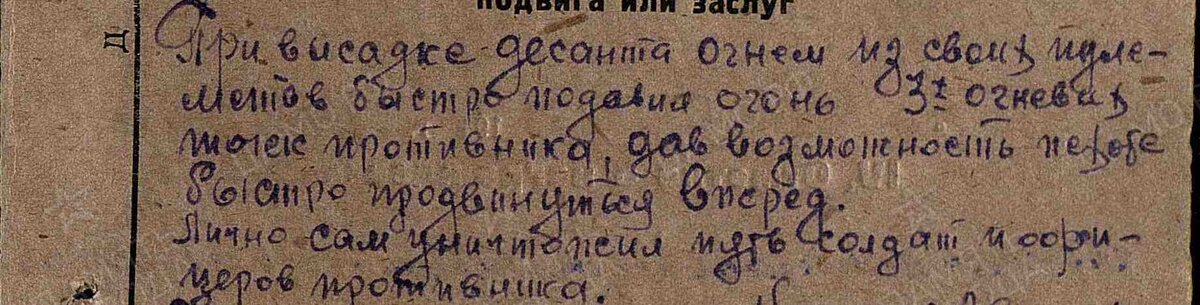 подвига или заслуг
Д
При висадке десанта огнем из своих пуле-
метов быстро подавил огонь 3х огневых
точек противника, дав возможность пехоте
быстро продвинуться вперед.
Лично сам уничтожил пять солдат и офи-
церов противника.